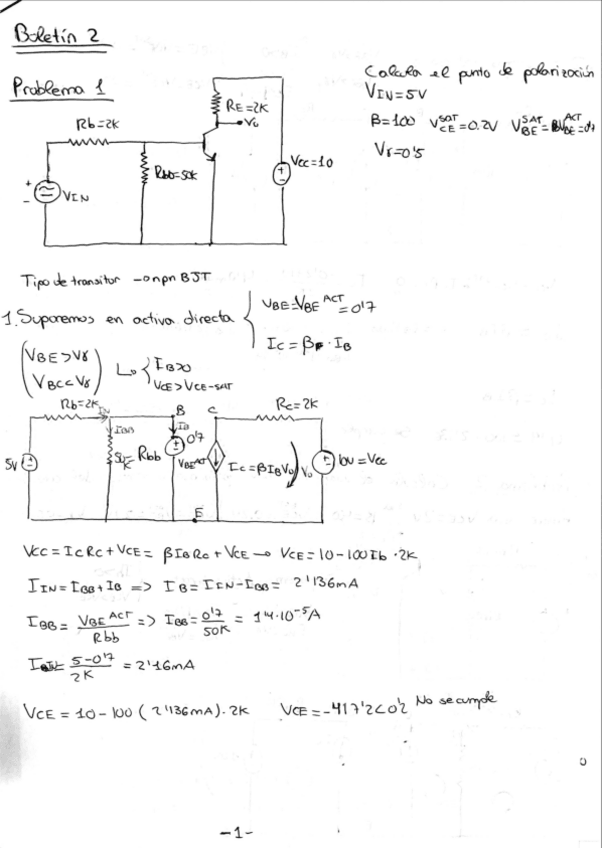 Boletín 2
Problema 1
Calcula el punto de polarización
VIN=5V
β=100 VCE^SAT=0.2V VBE^SAT=VBE^ACT=0'7
Vγ=0'5
RE=2K
Vo
Rb=2K
Rbb=50K
VCC=10
+
-
VIN
Tipo de transitor → npn BJT
1. Suponemos en activa directa { VBE=VBE^ACT=0'7
IC=βF·IB
(VBE>Vγ
VBC<Vγ) ↳ { IB>0
VCE>VCE-SAT
Rb=2K IIN B C RC=2K
IBB IB
5V 50K Rbb 0'7 VBE^ACT IC=βIB Vo Vo 10V=VCC
E
VCC=ICRC+VCE=βIBRC+VCE → VCE=10-100Ib·2K
IIN=IBB+IB => IB=IIN-IBB= 2'136mA
IBB= VBE^ACT/Rbb => IBB=0'7/50K = 1'4·10^-5A
IIN= 5-0'7/2K = 2'16mA
VCE=10-100(2'136mA)·2K VCE=-417'2<0'2 No se cumple
-1-